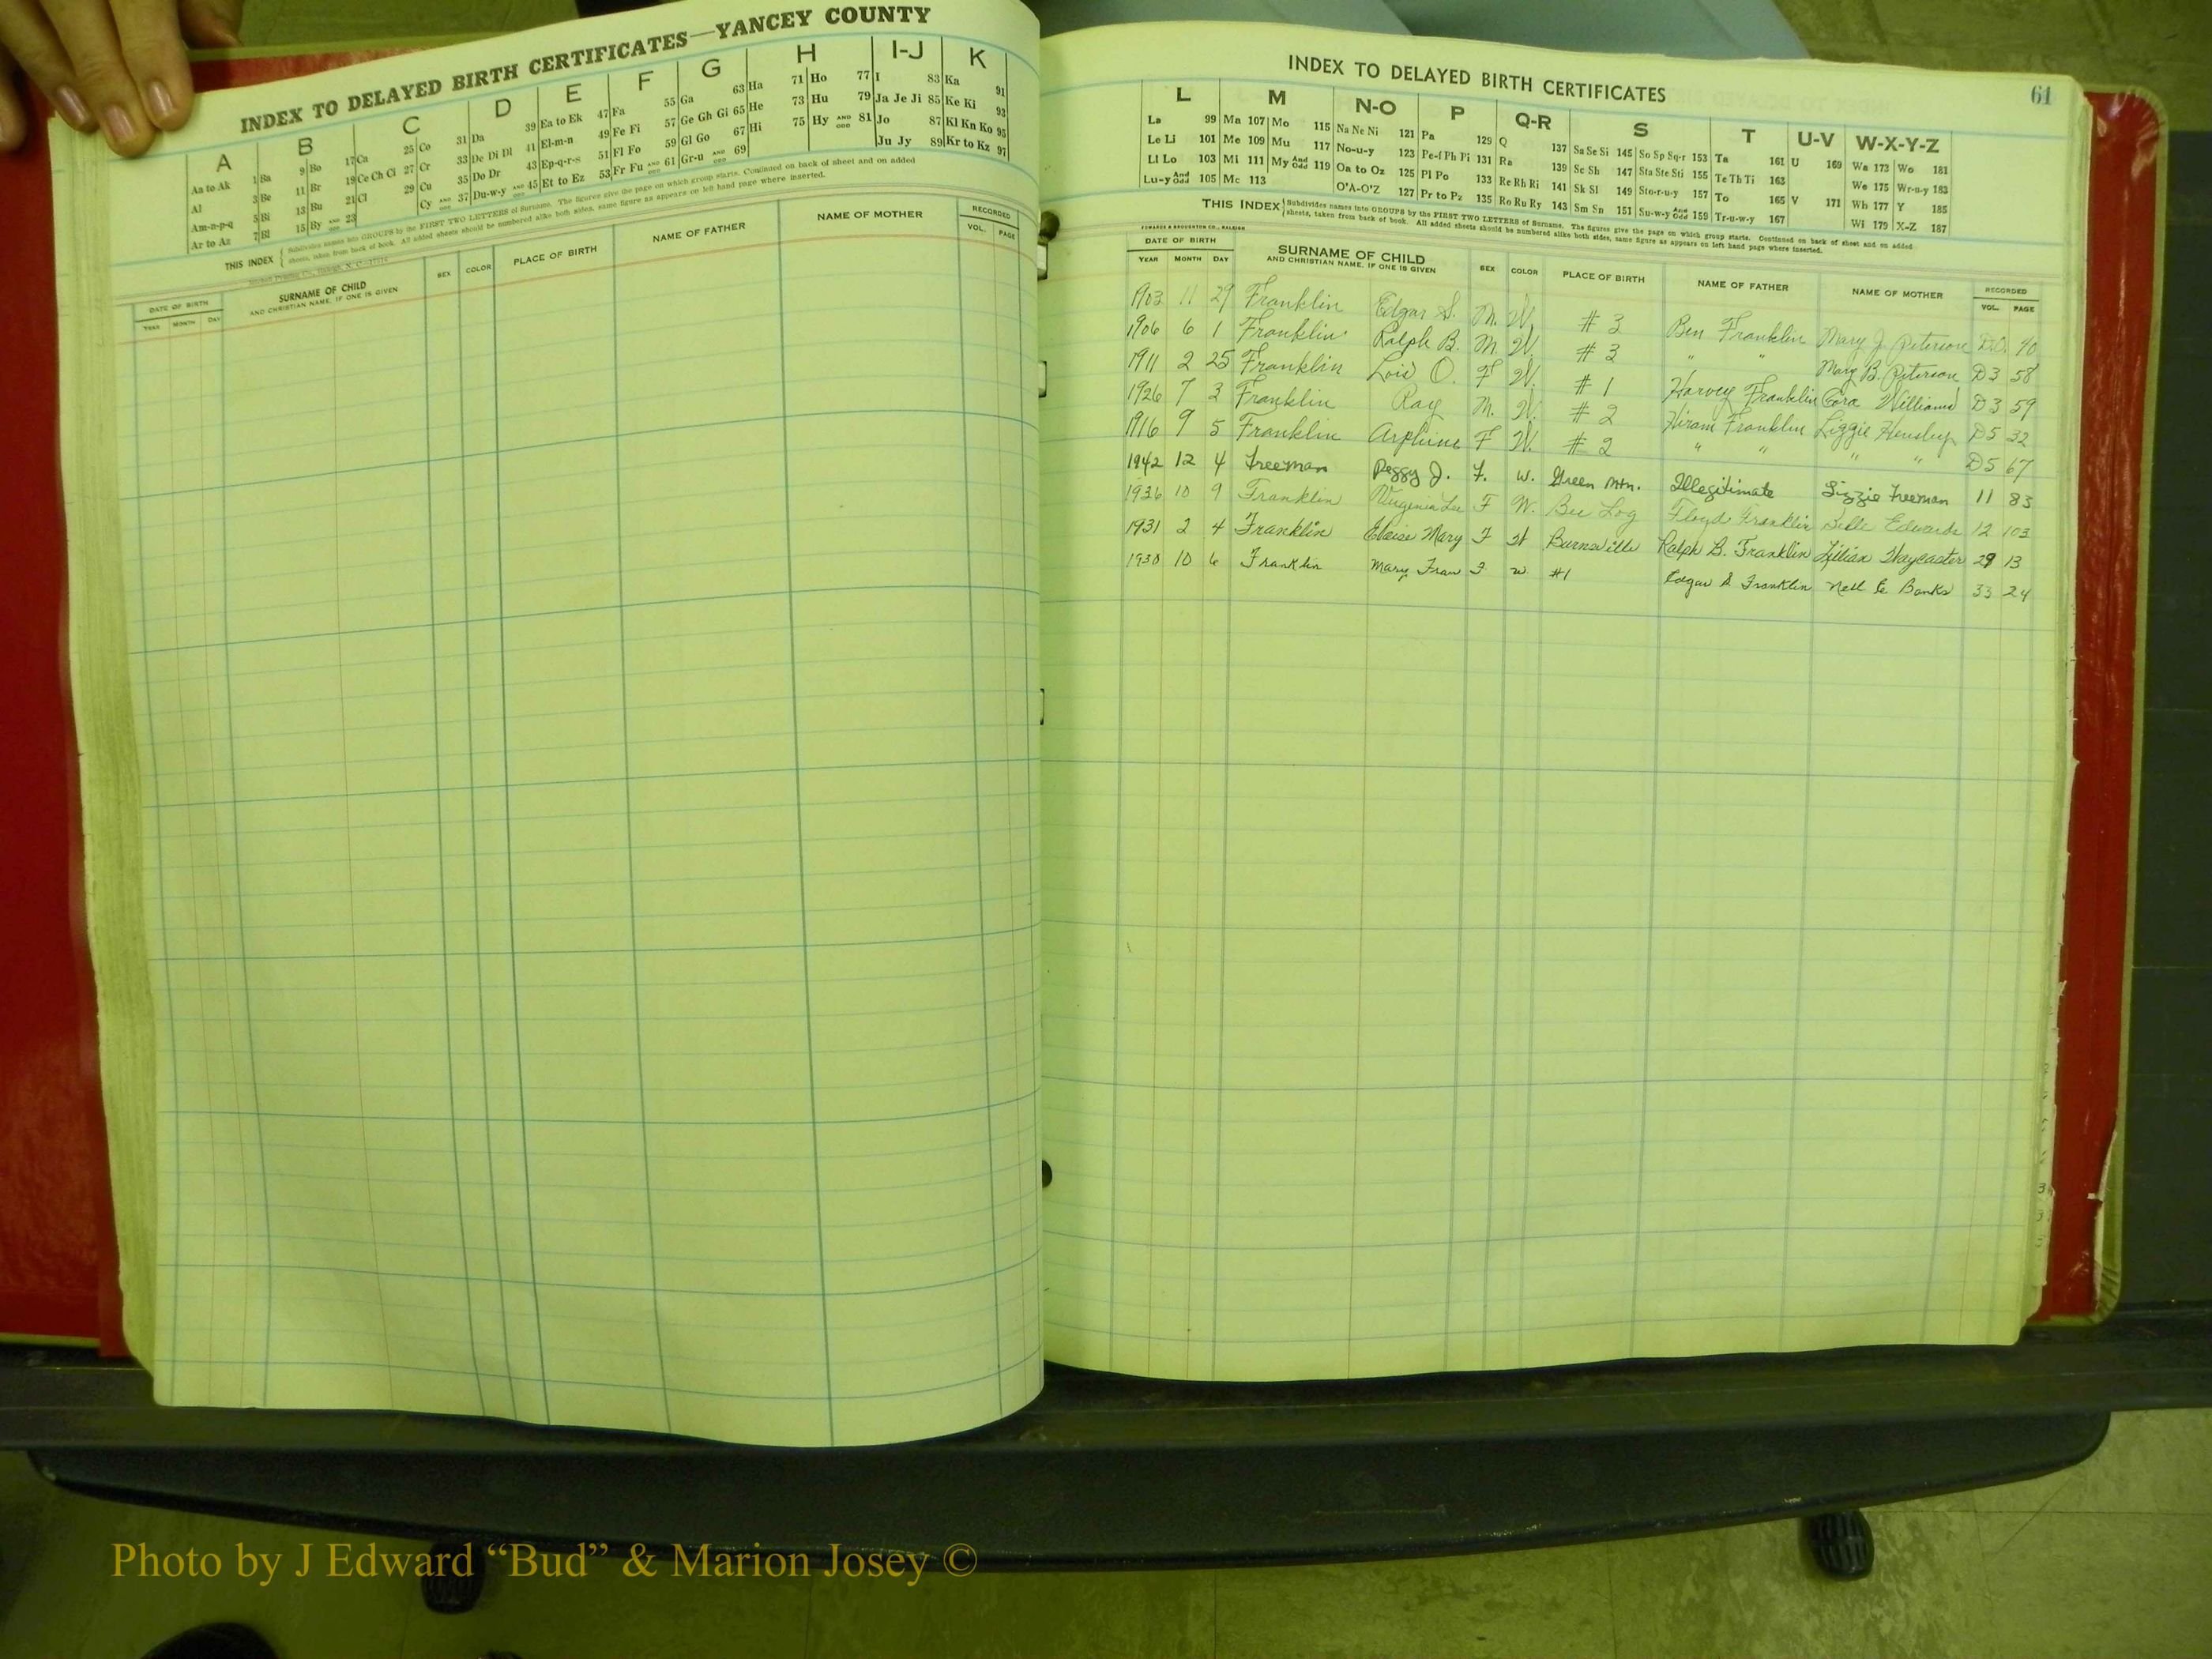 INDEX TO DELAYED BIRTH CERTIFICATES—YANCEY COUNTY
A B C D E F G H I-J K
Aa to Ak 1 Ba 9 Bo 17 Ca 25 Co 31 Da 39 Ea to Ek 47 Fa 55 Ga 63 Ha 71 Ho 77 I 83 Ka 91
Al 3 Be 11 Br 19 Ce Ch Ci 27 Cr 33 De Di Dl 41 El-m-n 49 Fe Fi 57 Ge Gh Gi 65 He 73 Hu 79 Ja Je Ji 85 Ke Ki 93
Am-n-p-q 5 Bi 13 Bu 21 Cl 29 Cu 35 Do Dr 43 Ep-q-r-s 51 Fl Fo 59 Gl Go 67 Hi 75 Hy AND ODD 81 Jo 87 Kl Kn Ko 95
Ar to Az 7 Bl 15 By AND 23 Cy AND ODD 37 Du-w-y AND 45 Et to Ez 53 Fr Fu AND ODD 61 Gr-u AND ODD 69 Ju Jy 89 Kr to Kz 97
THIS INDEX { Subdivides names into GROUPS by the FIRST TWO LETTERS of Surname. The figures give the page on which group starts. Continued on back of sheet and on added
sheets, taken from back of book. All added sheets should be numbered alike both sides, same figure as appears on left hand page where inserted.
DATE OF BIRTH SURNAME OF CHILD SEX COLOR PLACE OF BIRTH NAME OF FATHER NAME OF MOTHER RECORDED
YEAR MONTH DAY AND CHRISTIAN NAME, IF ONE IS GIVEN VOL. PAGE
INDEX TO DELAYED BIRTH CERTIFICATES 61
L M N-O P Q-R S T U-V W-X-Y-Z
La 99 Ma 107 Mo 115 Na Ne Ni 121 Pa 129 Q 137 Sa Se Si 145 So Sp Sq-r 153 Ta 161 U 169 Wa 173 Wo 181
Le Li 101 Me 109 Mu 117 No-u-y 123 Pe-f Ph Pi 131 Ra 139 Sc Sh 147 Sta Ste Sti 155 Te Th Ti 163 We 175 Wr-u-y 183
Ll Lo 103 Mi 111 My And Odd 119 Oa to Oz 125 Pl Po 133 Re Rh Ri 141 Sk Sl 149 Sto-r-u-y 157 To 165 V 171 Wh 177 Y 185
Lu-y And Odd 105 Mc 113 O'A-O'Z 127 Pr to Pz 135 Ro Ru Ry 143 Sm Sn 151 Su-w-y And Odd 159 Tr-u-w-y 167 Wi 179 X-Z 187
THIS INDEX { Subdivides names into GROUPS by the FIRST TWO LETTERS of Surname. The figures give the page on which group starts. Continued on back of sheet and on added
sheets, taken from back of book. All added sheets should be numbered alike both sides, same figure as appears on left hand page where inserted.
EDWARDS & BROUGHTON CO., RALEIGH
DATE OF BIRTH SURNAME OF CHILD SEX COLOR PLACE OF BIRTH NAME OF FATHER NAME OF MOTHER RECORDED
YEAR MONTH DAY AND CHRISTIAN NAME, IF ONE IS GIVEN VOL. PAGE
1903 11 29 Franklin Edgar S. M. W. # 3 Ben Franklin Mary J. Peterson 40
1906 6 1 Franklin Ralph B. M. W. # 3 " " Mary B. Peterson D3 58
1911 2 25 Franklin Lois O. F W. # 1 Harvey Franklin Cora Williams D3 59
1926 7 3 Franklin Ray M. W. # 2 Hiram Franklin Lizzie Hensley D5 32
1916 9 5 Franklin Arphine F W. # 2 " " " " D5 67
1942 12 4 Freeman Peggy J. F. W. Green Mtn. Illegitimate Lizzie Freeman 11 83
1936 10 9 Franklin Virginia Lee F W. Bee Log Floyd Franklin Belle Edwards 12 103
1931 2 4 Franklin Eloise Mary F W Burnsville Ralph B. Franklin Lillian Haycaster 29 13
1930 10 6 Franklin Mary Fran F W #1 Edgar S Franklin Nell E Banks 33 24
Photo by J Edward “Bud” & Marion Josey ©